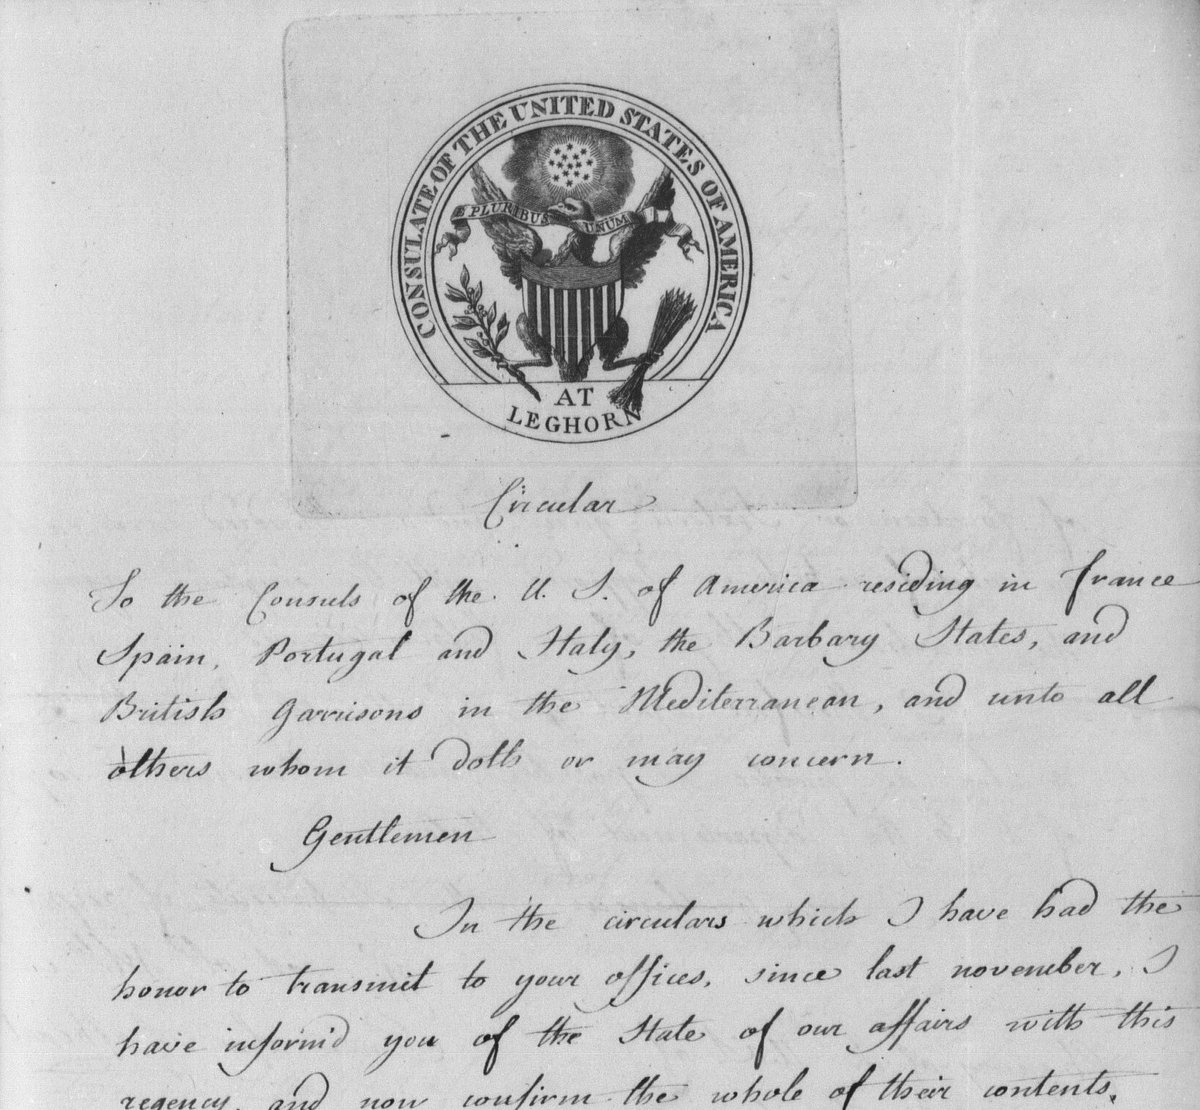 CONSULATE OF THE UNITED STATES OF AMERICA
E PLURIBUS UNUM
AT
LEGHORN
Circular
To the Consuls of the U. S. of America residing in france
Spain, Portugal and Italy, the Barbary States, and
British Garrisons in the Mediterranean, and unto all
others whom it doth or may concern.
Gentlemen
In the circulars which I have had the
honor to transmit to your offices, since last november, I
have inform'd you of the State of our affairs with this
regency, and now confirm the whole of their contents.